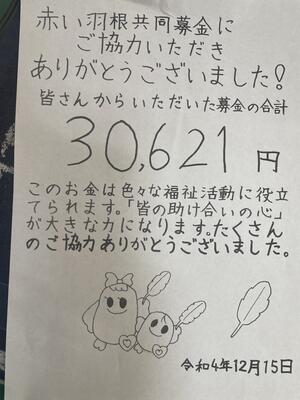 赤い羽根共同募金に
ご協力いただき
ありがとうございました!
皆さんからいただいた募金の合計
30,621円
このお金は色々な福祉活動に役立
てられます。「皆の助け合いの心」
が大きな力になります。たくさん
のご協力ありがとうございました。
令和4年12月15日